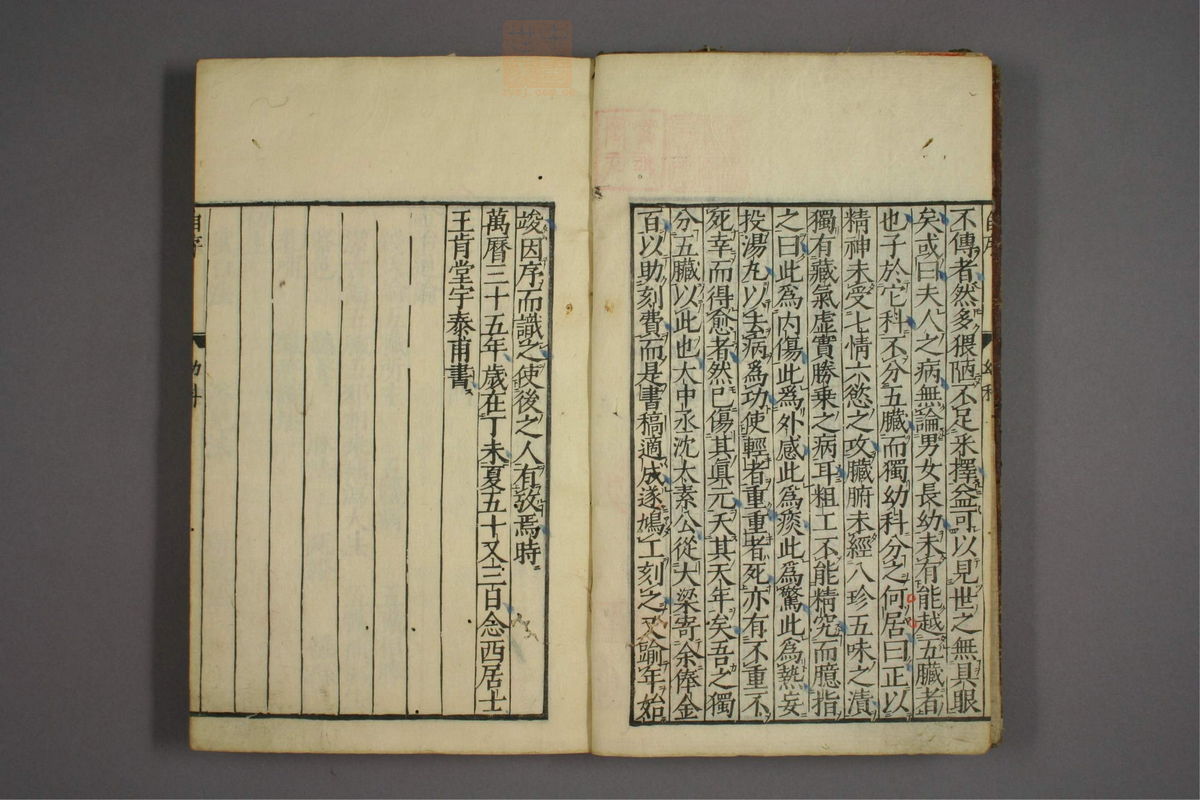 不傳者然多猥陋不足采擇益可以見世之無具眼
矣或曰夫人之病無論男女長幼未有能越五臟者
也子於它科不分五臟而獨幼科分之何居曰正以
精神未受七情六慾之攻臟腑未經八珍五味之漬
獨有藏氣虛實勝乗之病耳粗工不能精究而臆指
之曰此爲內傷此爲外感此爲痰此爲驚此爲熱妄
投湯丸以去病爲功使輕者重重者死亦有不重不
死幸而得愈者然已傷其眞元夭其天年矣吾之獨
分五臟以此也大中丞沈太素公從大梁寄余俸金
百以助刻費而是書稿適成遂鳩工刻之又踰年始
竣因序而識之使後之人有攷焉時
萬曆三十五年歲在丁未夏五十又三日念西居士
王肯堂宇泰甫書
自序
幼科